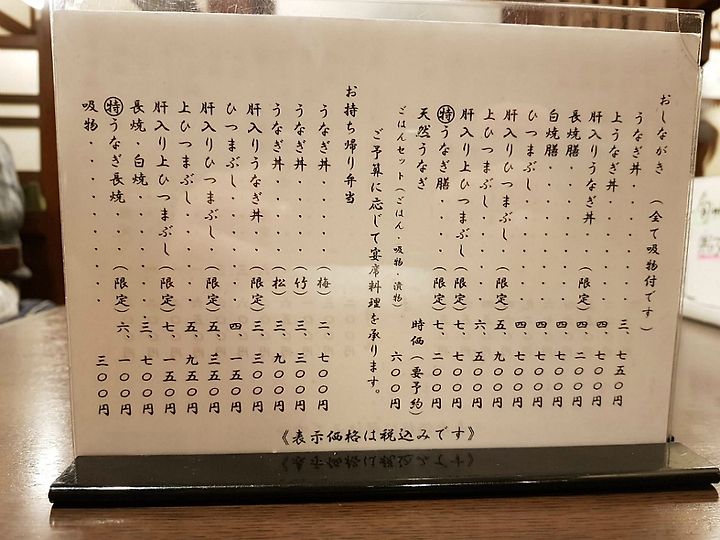 おしながき (全て吸物付です)
うなぎ丼・・・・・・三、七五〇円
上うなぎ丼・・・・・四、七〇〇円
肝入りうなぎ丼(限定)四、
長焼膳・・・・・・・四、七〇〇円
白焼膳・・・・・・・四、七〇〇円
ひつまぶし・・・・・四、
肝入りひつまぶし・(限定)五、九〇〇円
上ひつまぶし・・・・六、五〇〇円
肝入り上ひつまぶし(限定)七、
㊕うなぎ膳・・・(限定)七、二〇〇円
天然うなぎ 時価(要予約)
ごはんセット(ごはん・吸物・漬物) 六〇〇円
ご予算に応じて宴席料理を承ります。
お持ち帰り弁当
うなぎ丼・・・(梅)二、七〇〇円
うなぎ丼・・・(竹)三、三〇〇円
うなぎ丼・・・(松)三、九〇〇円
肝入りうなぎ丼(限定)三、三〇〇円
ひつまぶし・・・・・四、一五〇円
肝入りひつまぶし・(限定)五、三五〇円
上ひつまぶし・・・・五、九五〇円
肝入り上ひつまぶし(限定)七、一五〇円
長焼・白焼・・・・・三、七〇〇円
㊕うなぎ長焼・・・(限定)六、一〇〇円
吸物・・・・・・・・三〇〇円
《表示価格は税込みです》